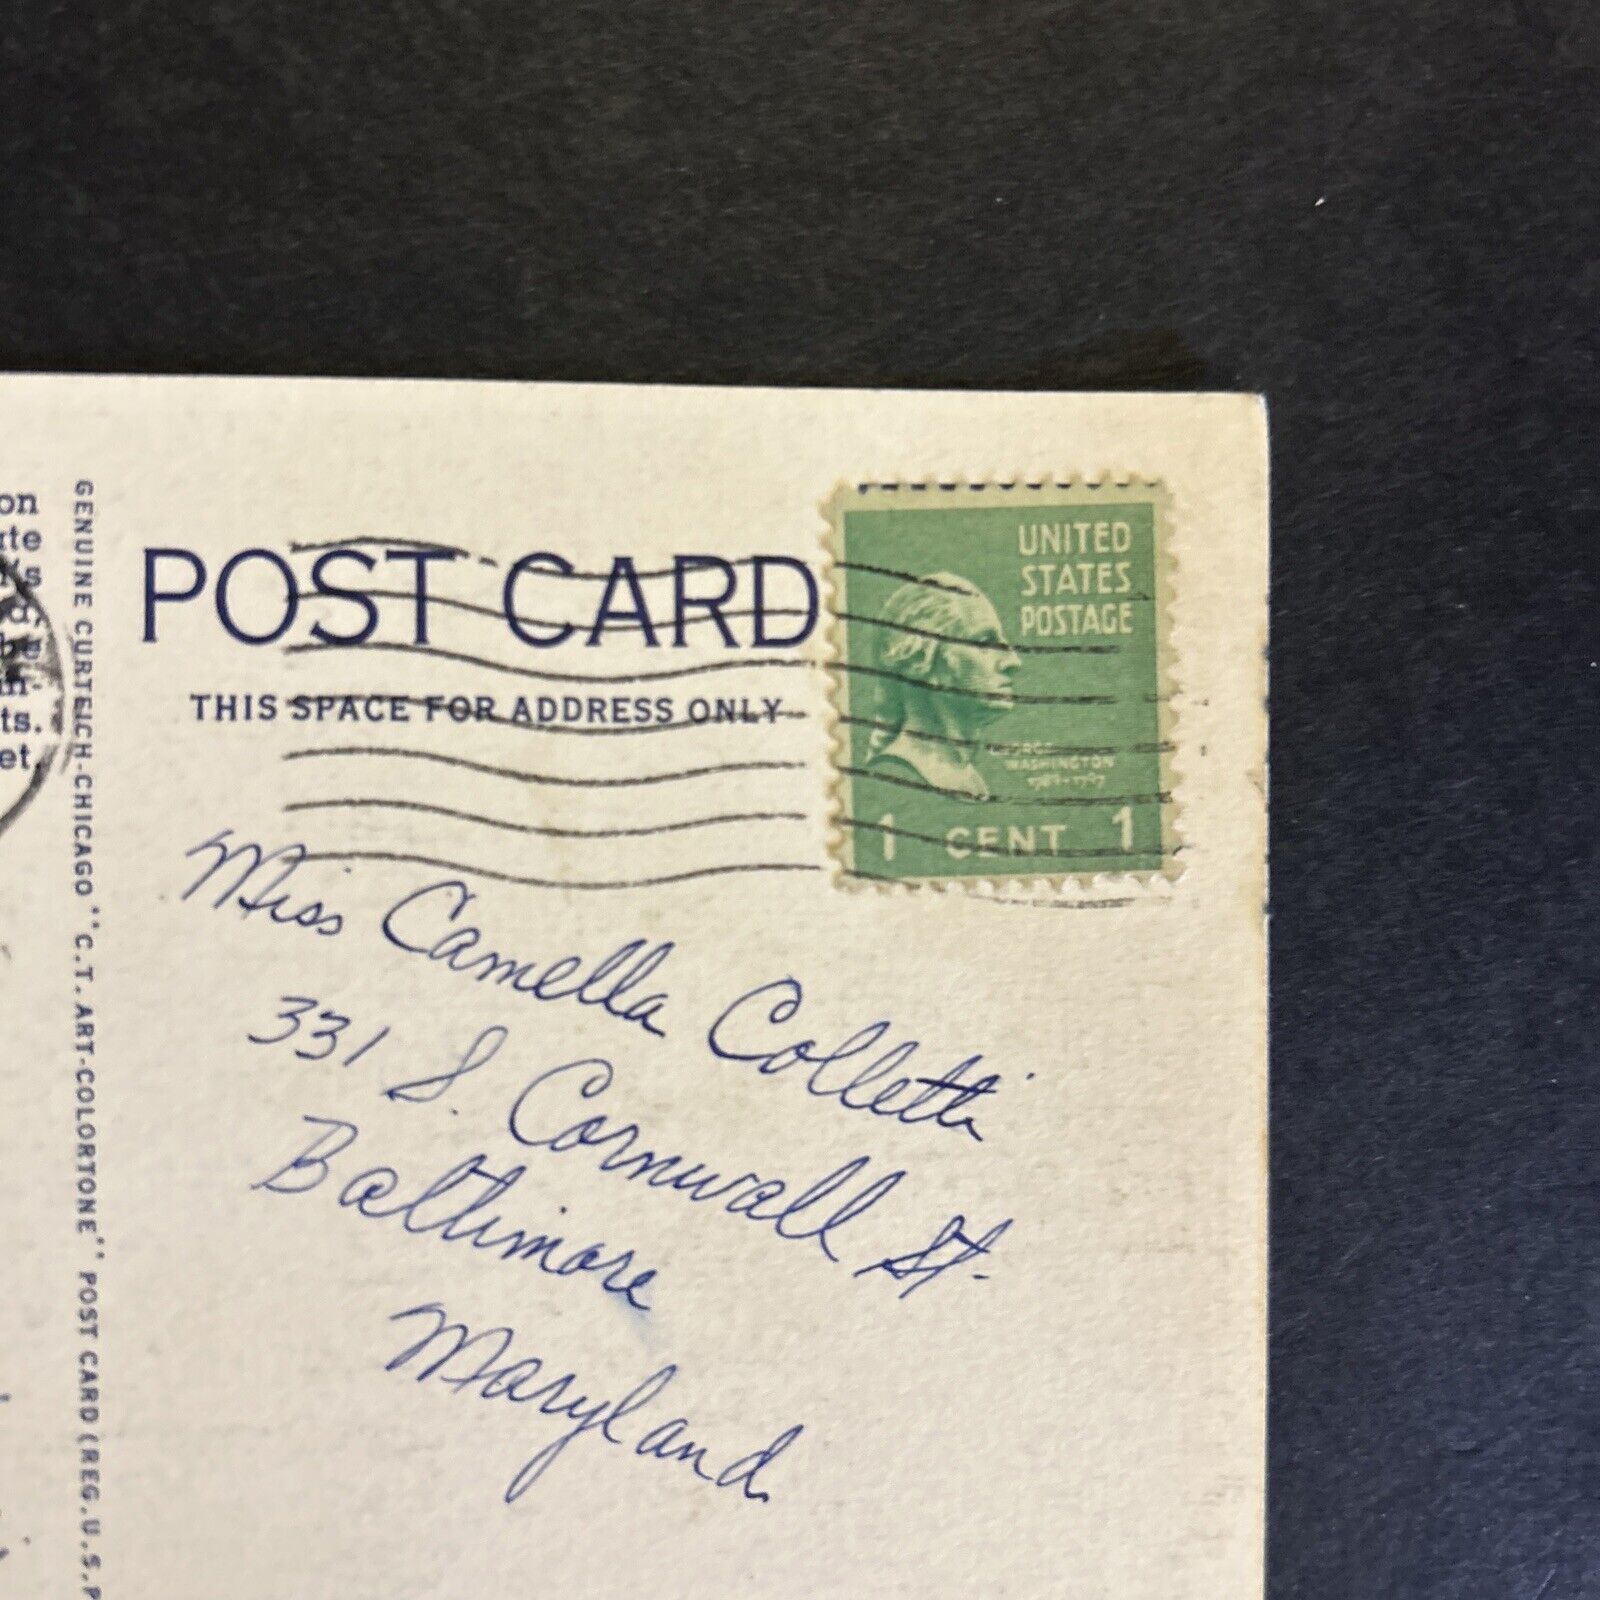 on
POST CARD
THIS SPACE FOR ADDRESS ONLY
GENUINE CURTEICH-CHICAGO "C.T. ART-COLORTONE" POST CARD (REG. U.S. P
ts.
et.
UNITED
STATES
POSTAGE
GEORGE
WASHINGTON
1789-1797
1 CENT 1
Miss Camella Colletti
331 S. Cornwall St.
Baltimore
Maryland